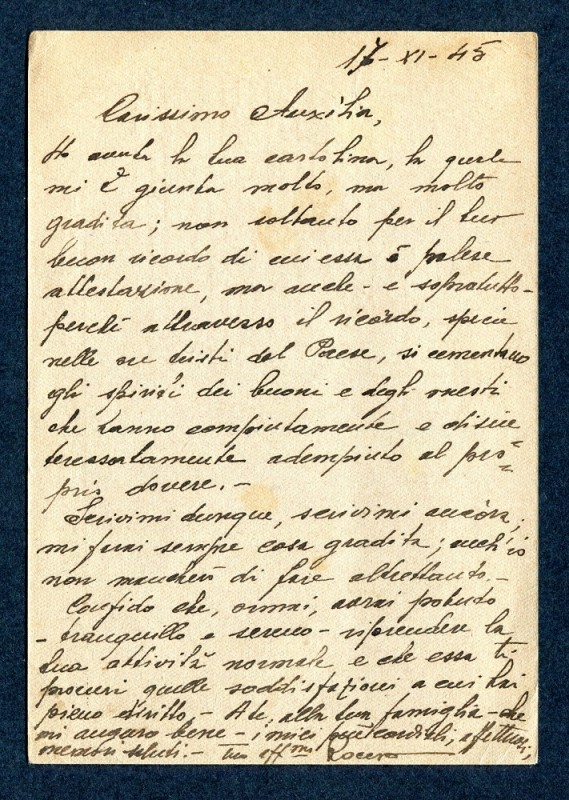 17-XI-45
Carissimo Auxilia,
Ho avuta la tua cartolina, la quale
mi è giunta molto, ma molto
gradita; non soltanto per il tuo
buon ricordo di cui essa è palese
attestazione, ma anche - e sopratutto -
perché attraverso il ricordo, specie
nelle ore tristi del Paese, si cementano
gli spiriti dei buoni e degli onesti
che hanno compiutamente e disin
teressatamente adempiuto al pro=
prio dovere.-
Scrivimi dunque, scrivimi ancora;
mi farai sempre cosa gradita; anch'io
non mancherò di fare altrettanto.-
Confido che, ormai, avrai potuto
- tranquillo e sereno - riprendere la
tua attività normale e che essa ti
procuri quelle soddisfazioni a cui hai
pieno diritto - A te, alla tua famiglia - che
mi auguro bene - i miei più cordiali, affettuosi,
saluti.- tuo aff.mo